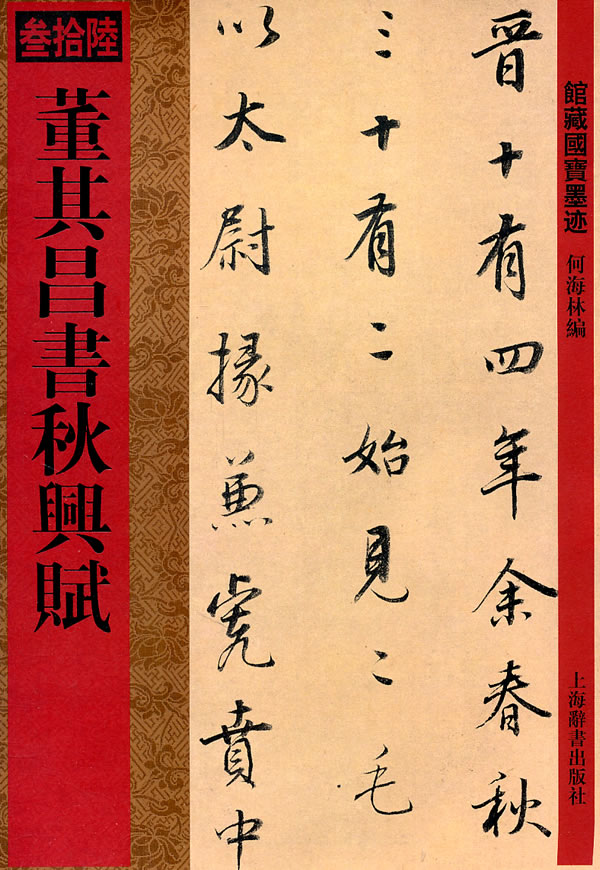 館藏國寶墨迹
何海林編
上海辭書出版社
晋十有四年余春秋
三十有二始見二毛
以太尉掾兼虎賁中
叁拾陸
董其昌書秋興賦